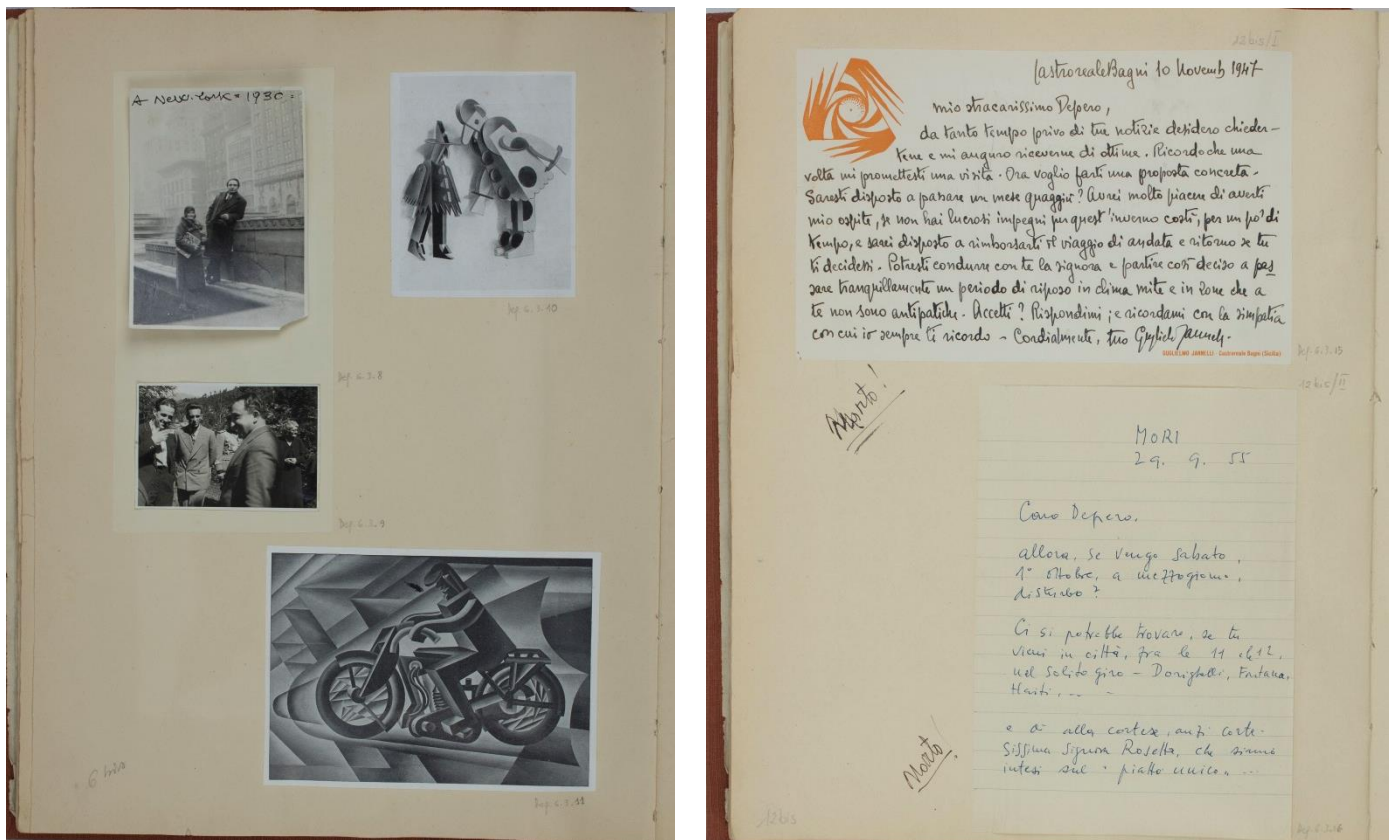 A New-York = 1930 =
Dep. 6.3.10
Dep. 6.3.8
Dep. 6.3.9
Dep. 6.3.11
6
12bis/I
CastrorealeBagni 10 Novemb 1947
mio stracarissimo Depero,
da tanto tempo privo di tue notizie desidero chieder-
tene e mi auguro riceverne di ottime. Ricordo che una
volta mi promettesti una visita. Ora voglio farti una proposta concreta.
Saresti disposto a passare un mese quaggiù? Avrei molto piacere di averti
mio ospite, se non hai lucrosi impegni per quest'inverno costì, per un po' di
tempo, e sarei disposto a rimborsarti il viaggio di andata e ritorno se tu
ti decidessi. Potresti condurre con te la signora e partire così deciso a pas
sare tranquillamente un periodo di riposo in clima mite e in zone che a
te non sono antipatiche. Accetti? Rispondimi; e ricordami con la simpatia
con cui io sempre ti ricordo - Cordialmente, tuo Guglielmo Jannelli.
GUGLIELMO JANNELLI - Castroreale Bagni (Sicilia)
Dep. 6.3.15
12bis/II
Morto!
MORI
29. 9. 55
Caro Depero,
allora, se vengo sabato,
1° ottobre, a mezzogiorno,
disturbo?
Ci si potrebbe trovare, se tu
vieni in città, fra le 11 e le 12,
nel solito giro - Fontana,
Haiti, ...
e di' alla cortese, anzi corte-
sissima signora Rosetta, che siamo
intesi sul "piatto unico" ...
Morto!
12bis
Dep. 6.3.16